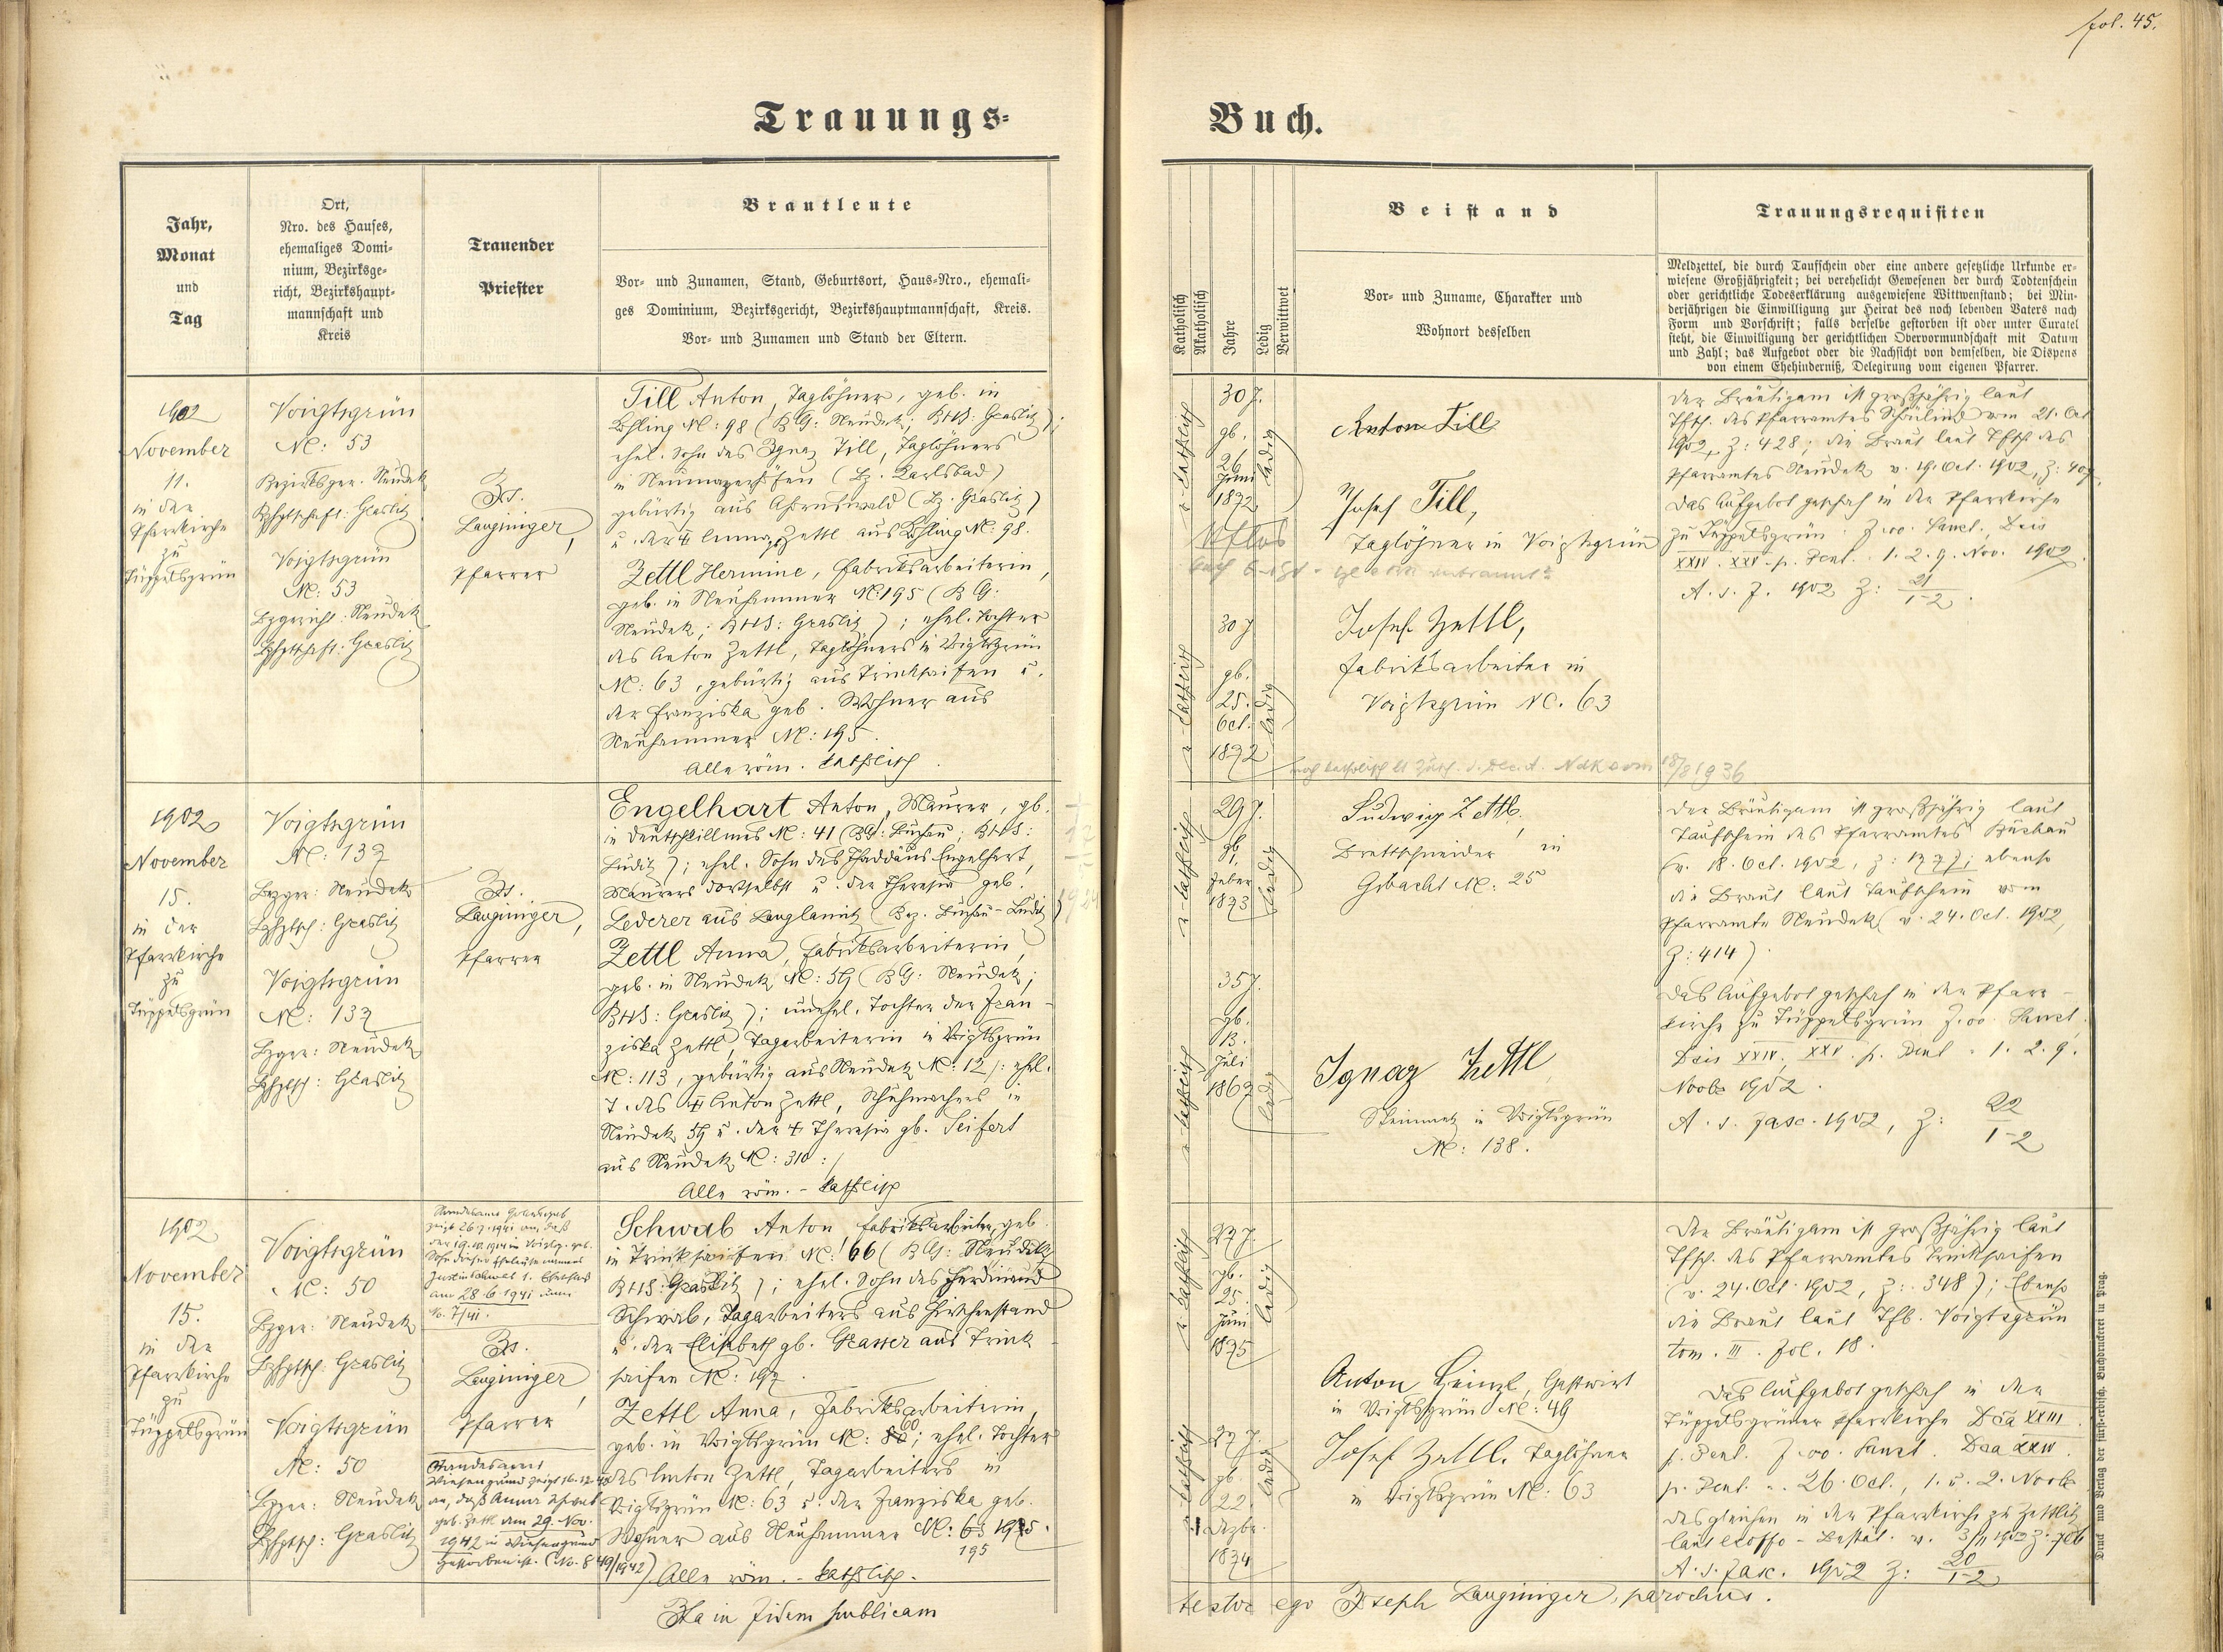 fol. 45.
Trauungs-
Buch.
Jahr,
Monat
und
Tag
Ort,
Nro. des Hauses,
ehemaliges Domi-
nium, Bezirksge-
richt, Bezirkshaupt-
mannschaft und
Kreis
Trauender
Priester
Brautleute
Vor- und Zunamen, Stand, Geburtsort, Haus-Nro., ehemali-
ges Dominium, Bezirksgericht, Bezirkshauptmannschaft, Kreis.
Vor- und Zunamen und Stand der Eltern.
Katholisch
Akatholisch
Jahre
Ledig
Verwittwet
Beistand
Vor- und Zuname, Charakter und
Wohnort desselben
Trauungsrequisiten
Meldzettel, die durch Taufschein oder eine andere gesetzliche Urkunde er-
wiesene Großjährigkeit; bei verehelicht Gewesenen der durch Todtenschein
oder gerichtliche Todeserklärung ausgewiesene Wittwenstand; bei Min-
derjährigen die Einwilligung zur Heirat des noch lebenden Vaters nach
Form und Vorschrift; falls derselbe gestorben ist oder unter Curatel
steht, die Einwilligung der gerichtlichen Obervormundschaft mit Datum
und Zahl; das Aufgebot oder die Nachsicht von demselben, die Dispens
von einem Ehehinderniß, Delegirung vom eigenen Pfarrer.
1902
November
11.
in der
Pfarrkirche
zu
Tüppelsgrün
Voigtsgrün
NC: 53
Bezirksger. Neudek
Bzhptschaft: Graslitz
Voigtsgrün
NC: 53
Bzgericht: Neudek
Bzhptschaft: Graslitz
Jos.
Lauginiger,
Pfarrer
Till Anton, Taglöhner, geb. in
NC: 98 (BG: Neudek; BHS: Graslitz);
ehel. Sohn des Ignaz Till, Taglöhners
in (Bz. Karlsbad)
gebürtig aus (Bz. Graslitz)
u. der Zettl aus NC. 98.
Zettl Hermine, Fabriksarbeiterin,
geb. in Neuhammer NC. 195 (BG:
Neudek; BHS: Graslitz); ehel. Tochter
des Anton Zettl, Taglöhners in Voigtsgrün
NC: 63, gebürtig aus Trinksaifen u.
der Franziska geb. Wohner aus
Neuhammer NC: 195.
Alle röm. katholisch.
r. katholisch
30 J.
gb.
26
Juni
1872
ledig
Anton Till
Josef Till,
Taglöhner in Voigtsgrün
r. katholisch
30 J
gb.
25.
Oct.
1872
ledig
Josef Zettl,
Fabriksarbeiter in
Voigtsgrün NC. 63
Der Bräutigam ist großjährig laut
Tfsch. des Pfarramtes vom 21. Oct
1902, Z: 428; die Braut laut Tfsch des
Pfarramtes Neudek v. 19. Oct. 1902, Z: 407
Das Aufgebot geschah in der Pfarrkirche
zu Tüppelsgrün Sanct., Dcis
XXIV. XXV. p. Pent. 1. 2. 9. Nov. 1902.
A. s. F. 1902 Z: 21/1-2.
1902
November
15.
in der
Pfarrkirche
zu
Tüppelsgrün
Voigtsgrün
NC: 137
Bzger: Neudek
Bzhptsch: Graslitz
Voigtsgrün
NC: 137
Bzger: Neudek
Bzhptsch: Graslitz
Jos.
Lauginiger,
Pfarrer
Engelhart Anton, Maurer, gb.
in Deutschkillmes NC: 41 (BG: Buchau; BHS:
Luditz); ehel. Sohn des Thaddäus Engelhart,
Maurers dortselbst u. der Theresia geb.
Lederer aus Langlamitz (Bez. Buchau-Luditz)
Zettl Anna, Fabriksarbeiterin,
geb. in Neudek NC: 59 (BG: Neudek;
BHS: Graslitz); unehel. Tochter der Fran-
ziska Zettl, Tagarbeiterin in Voigtsgrün
NC: 113, gebürtig aus Neudek NC: 12 /: ehel.
T. des Anton Zettl, Schuhmachers in
Neudek 59 u. der Theresia gb. Seifert
aus Neudek NC: 310 :/
Alle röm. - katholisch
r. katholisch
29 J.
gb.
Feber
1873
ledig
Ludwig Zettl,
Brettschneider in
NC: 25
r. katholisch
35 J.
gb.
13.
Juli
1867
ledig
Ignaz Zettl
Steinmetz in Voigtsgrün
NC: 138.
Der Bräutigam ist großjährig laut
Taufschein des Pfarramtes Buchau
(v. 18. Oct. 1902, Z: 1777; ebenso
die Braut laut Taufschein vom
Pfarramte Neudek (v. 24. Oct. 1902,
Z: 414).
Das Aufgebot geschah in der Pfarr-
kirche zu Tüppelsgrün Sanct.
Dcis XXIV, XXV. p. Pent = 1. 2. 9.
Novbr 1902.
A. s. Fasc. 1902, Z: 22/1-2
1902
November
15.
in der
Pfarrkirche
zu
Tüppelsgrün
Voigtsgrün
NC: 50
Bzger: Neudek
Bzhptsch: Graslitz
Voigtsgrün
NC: 50
Bzger: Neudek
Bzhptsch: Graslitz
zeigt 26.7.1941 an, daß
am 28.6.1941
No. 7/41.
Jos.
Lauginiger,
Pfarrer
Standesamt
Wiesengrund zeigt 16.12.42
an, daß Anna Schwab
geb. Zettl am 29. Nov.
1942 in Wiesengrund
gestorben ist. (No. 849/1942)
Schwab Anton Fabriksarbeiter, geb.
in Trinksaifen NC: 66 (BG: Neudek
BHS: Graslitz); ehel. Sohn des Ferdinand
Schwab, Tagarbeiters aus Hirschenstand
u. der Elisabeth gb. Grasser aus Trink-
saifen NC: 197.
Zettl Anna, Fabriksarbeiterin,
geb. in Voigtsgrün NC: 60; ehel. Tochter
des Anton Zettl, Tagarbeiters in
Voigtsgrün NC: 63 u. der Franziska geb.
Wohner aus Neuhammer NC: 195.
195
Alle röm. - katholisch.
r. katholisch
27 J.
gb.
25
Juni
1875
ledig
Anton Heinzl, Gastwirt
in Voigtsgrün NC: 49
r. katholisch
27 J.
gb.
22.
Dezbr.
1874
ledig
Josef Zettl, Taglöhner
in Voigtsgrün NC: 63
Der Bräutigam ist großjährig laut
Tfsch. des Pfarramtes Trinksaifen
(v. 24. Oct. 1902, Z: 348); Ebenso
die Braut laut Tfb. Voigtsgrün
tom. III. Fol. 18.
Das Aufgebot geschah in der
Tüppelsgrüner Pfarrkirche Dca XXIII.
p. Pent. Sanct. Dca XXIV.
p. Pent. = 26. Oct., 1. u. 2. Novbr
desgleichen in der Pfarrkirche zu Zettlitz
A. s. Fasc. 1902 Z: 20/1-2
Ita in fidem publicam
testor ego Joseph Lauginiger, parochus.
Druck und Verlag der fürst-erzbisch. Buchdruckerei in Prag.